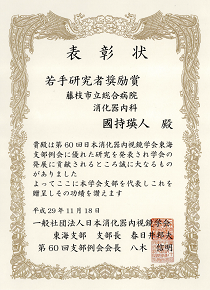 表彰状
若手研究者奨励賞
藤枝市立総合病院
消化器内科
國持瑛人 殿
貴殿は第60回日本消化器内視鏡学会東海
支部例会に優れた研究を発表され学会の
発展に貢献されるところ誠に大なるもの
がありました
よってここに本学会支部を代表しこれを
贈呈しその功績を讃えます
平成29年11月18日
一般社団法人日本消化器内視鏡学会
東海支部 支部長 春日井邦夫
第60回支部例会会長 八木 信明